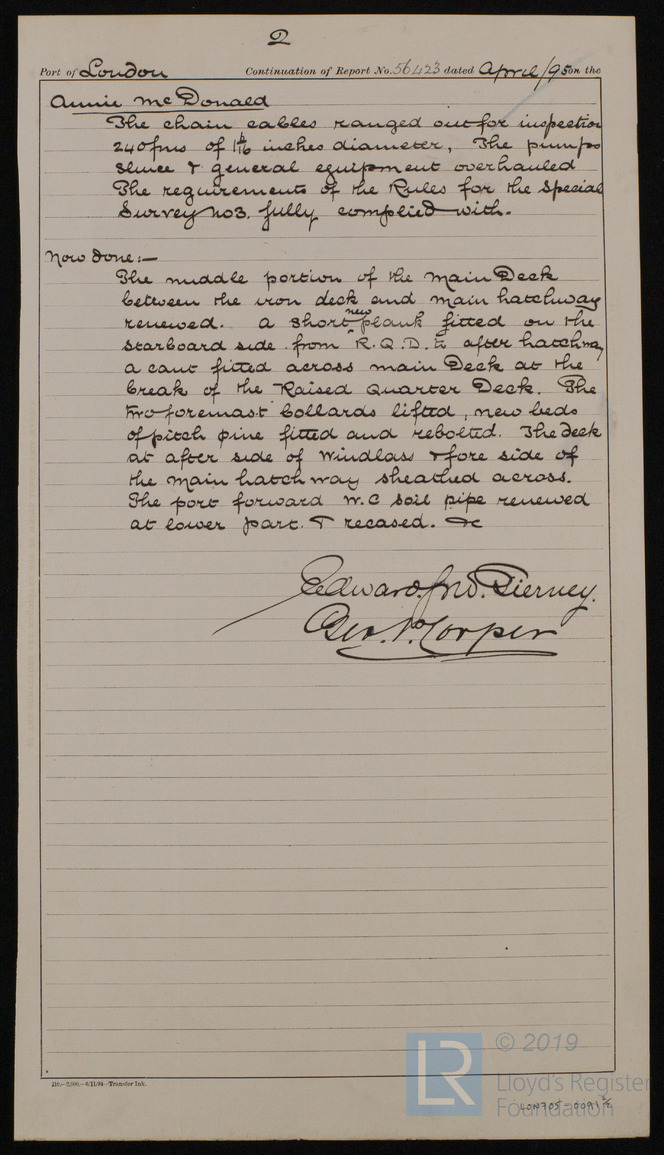 2
Port of London Continuation of Report No. 56423 dated April/95 on the
Annie McDonald
The chain cables ranged out for inspection
240 fms of 1 6/16 inches diameter, The pumps
sluice & general equipment overhauled
The requirements of the Rules for the Special
Survey No3. fully complied with.
Now done:—
The middle portion of the Main Deck
between the iron deck and main hatchway
renewed. A short new plank fitted on the
starboard side from R.Q.D. to after hatchway
a cant fitted across main Deck at the
break of the Raised Quarter Deck. The
two foremast bollards lifted, new beds
of pitch pine fitted and rebolted. The deck
at after side of windlass & fore side of
the main hatchway sheathed across.
The port forward W.C soil pipe renewed
at lower part. & recased. &c
Edward Jno. Tierney.
Geo. Cooper
210.—2,000.—6/11/94—Transfer Ink.
LR © 2019
Lloyd's Register
Foundation
LON705-0091 2/2